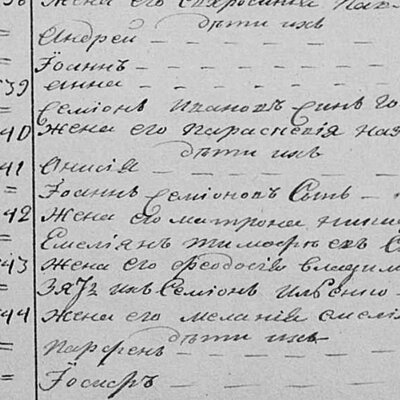 жена его
дѣти ихъ
= Андрей
= Іоаннъ
39 Анна
Семіонъ Ивановъ Синъ
40 жена его Параскевія
дѣти ихъ
41 Онисія
= Іоаннъ Семіоновъ Сынъ
42 жена его Матрона
= Емеліянъ Тимофѣевъ
43 жена его Феодосія Владим
= Зять ихъ Семіонъ Ильенко
44 жена его Меланія Емелія
дѣти ихъ
= Парфенъ
= Іосифъ